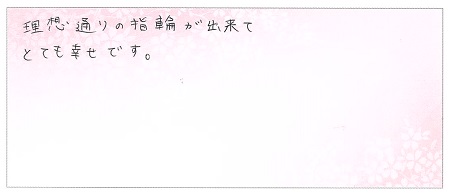 理想通りの指輪が出来て
とても幸せです。